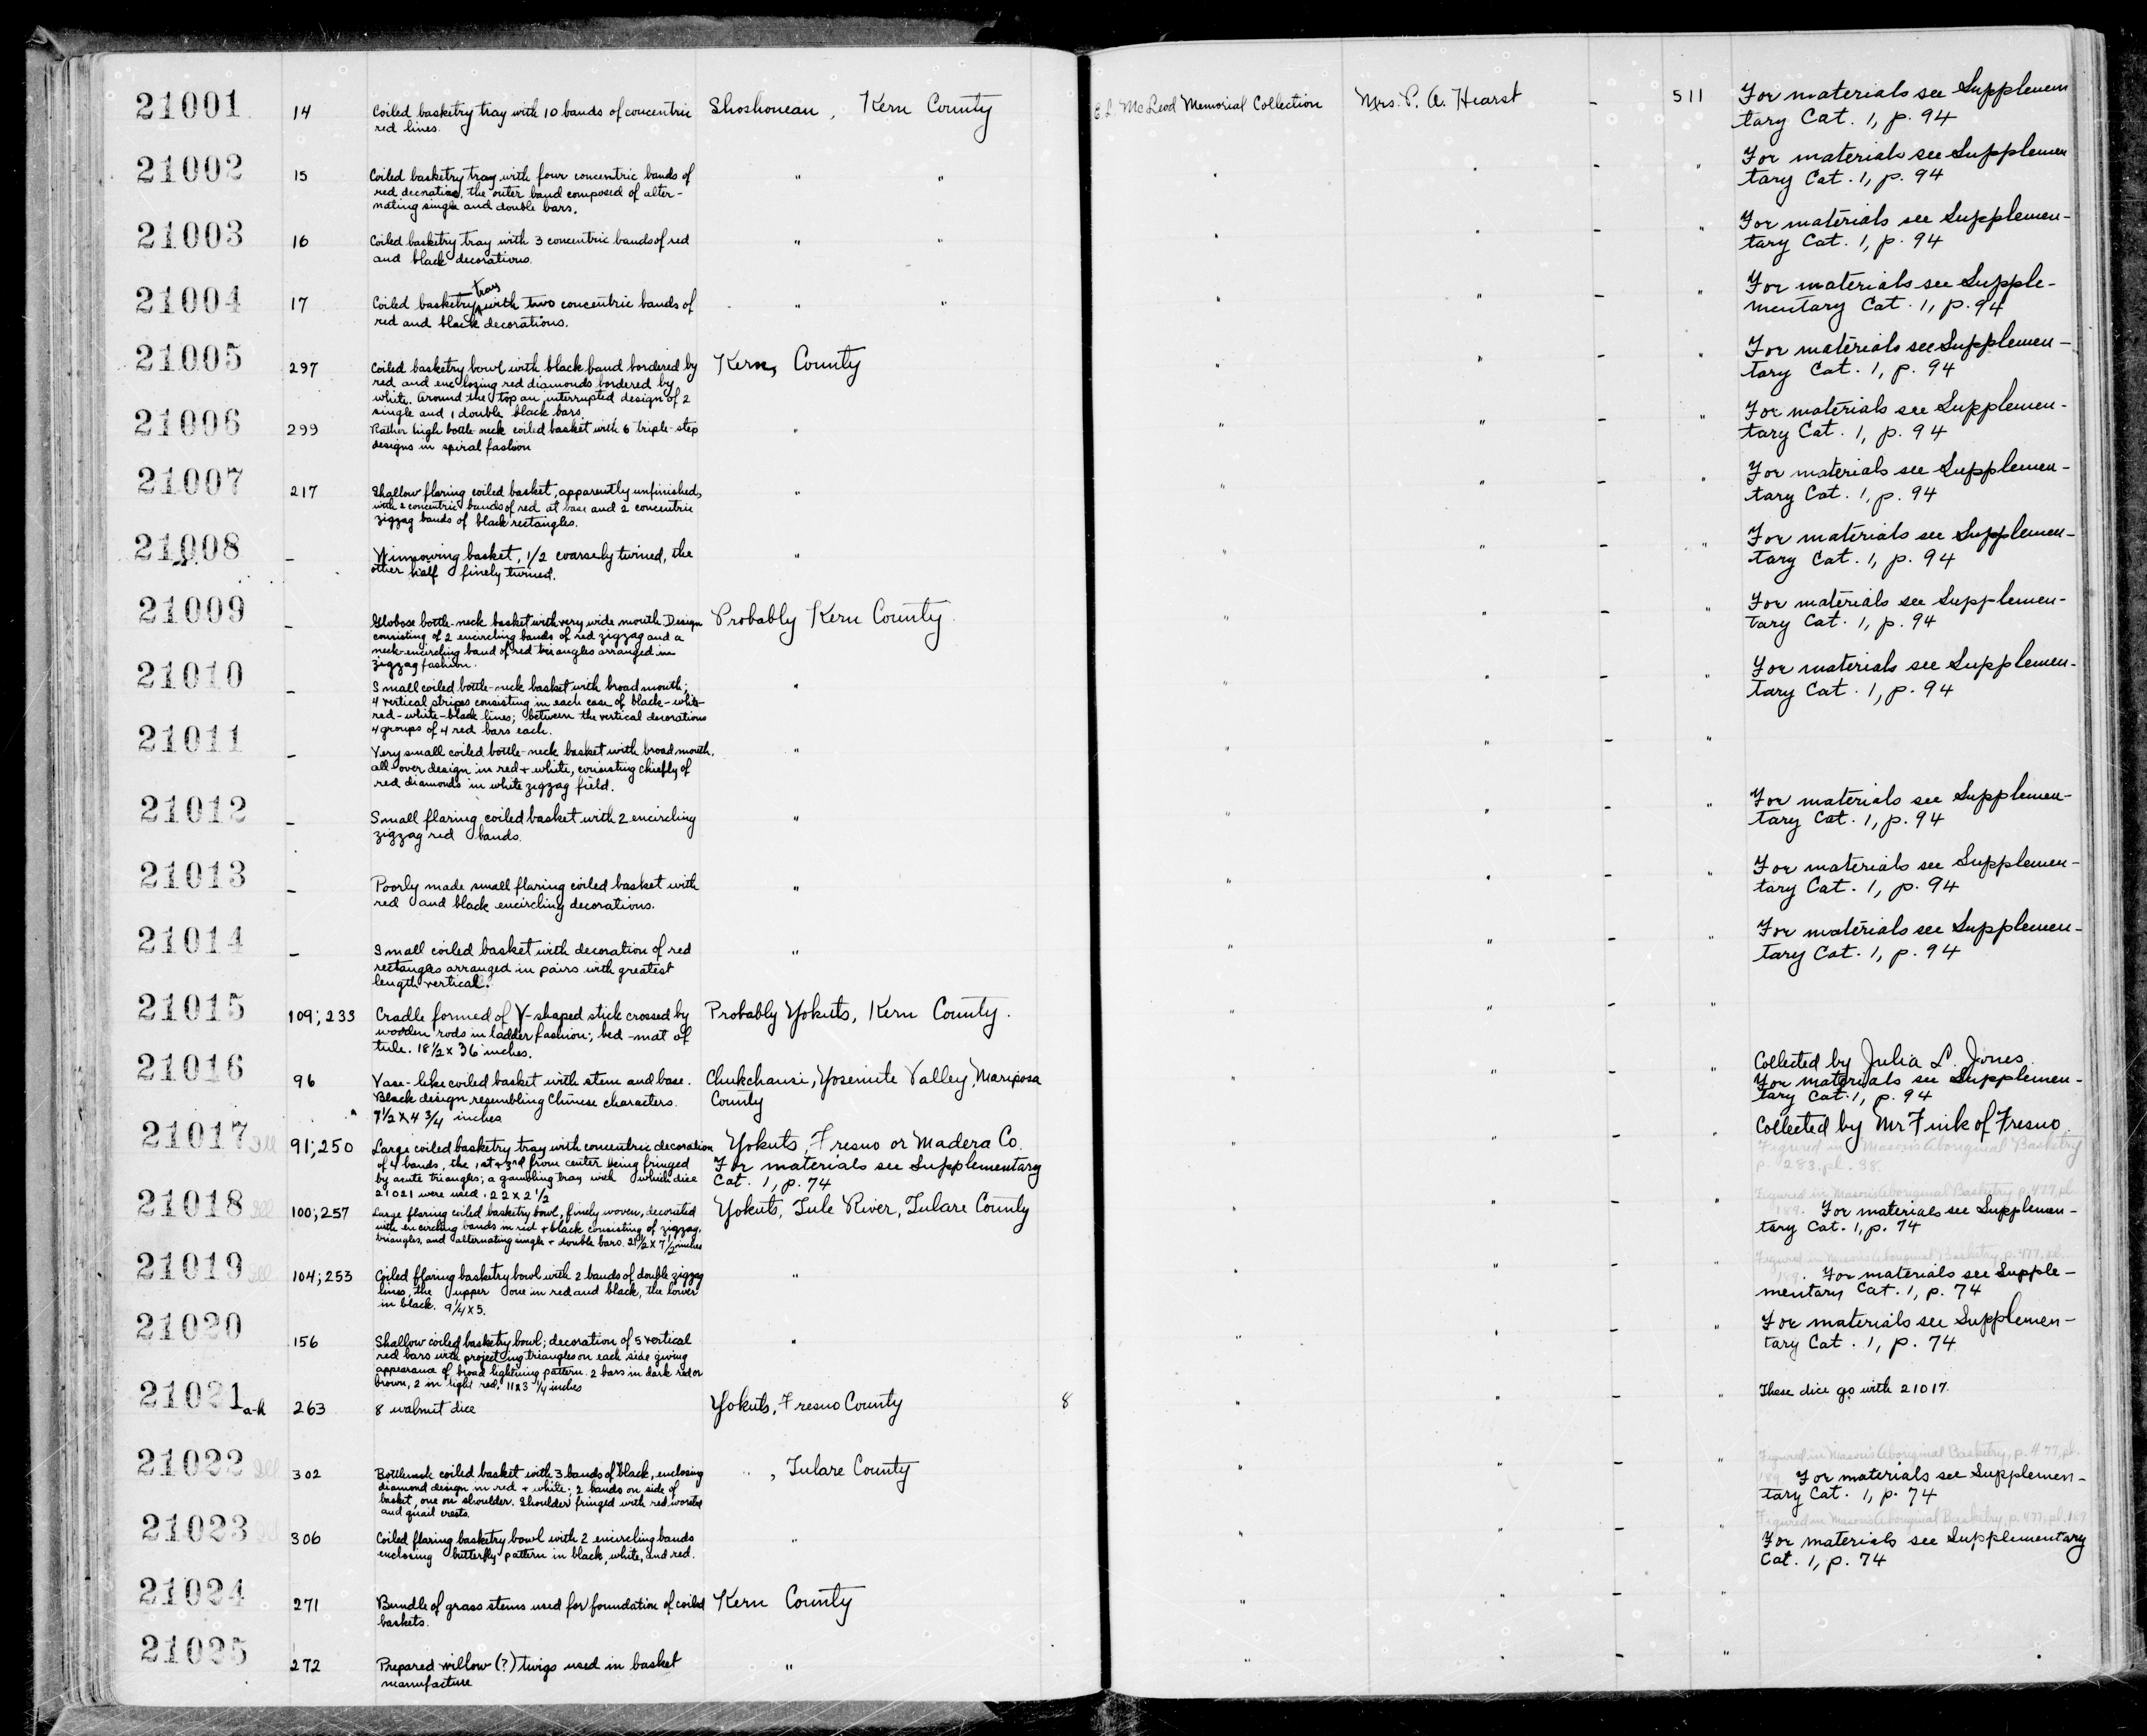 21001 14 Coiled basketry tray with 10 bands of concentric Shoshonean, Kern County E.L. McLeod Memorial Collection Mrs. P. A. Hearst - 511 For materials see Supplemen
red lines. tary Cat. 1, p. 94
21002 15 Coiled basketry tray with four concentric bands of " " " " - " For materials see Supplemen
red decoration, the outer band composed of alter- tary Cat. 1, p. 94
nating single and double bars.
21003 16 Coiled basketry tray with 3 concentric bands of red " " " " - " For materials see Supplemen-
and black decorations. tary Cat. 1, p. 94
tray
21004 17 Coiled basketry with two concentric bands of " " " " - " For materials see Supple-
red and black decorations. mentary Cat. 1, p. 94
21005 297 Coiled basketry bowl with black band bordered by Kern, County " " - " For materials see Supplemen-
red and enclosing red diamonds bordered by tary Cat. 1, p. 94
white. Around the top an interrupted design of 2
single and 1 double black bars.
21006 299 Rather high bottle-neck coiled basket with 6 triple-step " " " - " For materials see Supplemen-
designs in spiral fashion tary Cat. 1, p. 94
21007 217 Shallow flaring coiled basket, apparently unfinished, " " " - " For materials see Supplemen-
with 2 concentric bands of red at base and 2 concentric tary Cat. 1, p. 94
zigzag bands of black rectangles.
21008 - Winnowing basket, 1/2 coarsely twined, the " " " - " For materials see Supplemen-
other half finely twined. tary Cat. 1, p. 94
21009 - Globose bottle-neck basket with very wide mouth. Design Probably Kern County " " - " For materials see Supplemen-
consisting of 2 encircling bands of red zigzag and a tary Cat. 1, p. 94
neck-encircling band of red triangles arranged in
zigzag fashion.
21010 - Small coiled bottle-neck basket with broad mouth; " " " - " For materials see Supplemen-
4 vertical stripes consisting in each case of black-white- tary Cat. 1, p. 94
red-white-black lines; between the vertical decorations
4 groups of 4 red bars each.
21011 - Very small coiled bottle-neck basket with broad mouth, " " " - "
all-over design in red + white, consisting chiefly of
red diamonds in white zigzag field.
21012 - Small flaring coiled basket with 2 encircling " " " - " For materials see Supplemen-
zigzag red bands. tary Cat. 1, p. 94
21013 - Poorly made small flaring coiled basket with " " " - " For materials see Supplemen-
red and black encircling decorations. tary Cat. 1, p. 94
21014 - Small coiled basket with decoration of red " " " - " For materials see Supplemen-
rectangles arranged in pairs with greatest tary Cat. 1, p. 94
length vertical.
21015 109; 233 Cradle formed of Y-shaped stick crossed by Probably Yokuts, Kern County. " " - "
wooden rods in ladder fashion; bed-mat of
tule. 18 1/2 x 36 inches.
21016 96 Vase-like coiled basket with stem and base. Chukchansi, Yosemite Valley, Mariposa " " - " Collected by Julia L. Jones.
Black design resembling Chinese characters. County For materials see Supplemen-
7 1/2 x 4 3/4 inches tary Cat. 1, p. 94
21017 Ill 91; 250 Large coiled basketry tray with concentric decoration Yokuts, Fresno or Madera Co. " " - " Collected by Mr Fink of Fresno
of 4 bands, the 1st + 3rd from center being fringed For materials see Supplementary Figured in Mason's Aboriginal Basketry
by acute triangles; a gambling tray with which dice Cat. 1, p. 74 p. 283, pl. 38.
21021 were used. 22 x 2 1/2
21018 Ill 100; 257 Large flaring coiled basketry bowl, finely woven, decorated Yokuts, Tule River, Tulare County " " - " Figured in Mason's Aboriginal Basketry p. 477, pl.
with encircling bands in red + black consisting of zigzag, 189. For materials see Supplemen-
triangles, and alternating single + double bars. 21 1/2 x 7 1/2 inches tary Cat. 1, p. 74
21019 Ill 104; 253 Coiled flaring basketry bowl with 2 bands of double zigzag " " " - " Figured in Mason's Aboriginal Basketry, p. 477, pl.
lines, the upper one in red and black, the lower 189. For materials see Supple-
in black. 9 1/4 x 5. mentary Cat. 1, p. 74
21020 156 Shallow coiled basketry bowl; decoration of 5 vertical " " " - " For materials see Supplemen-
red bars with projecting triangles on each side giving tary Cat. 1, p. 74
appearance of broad lightning pattern. 2 bars in dark red or
brown, 2 in light red. 11 x 3 1/4 inches
21021 a-h 263 8 walnut dice Yokuts, Fresno County 8 " " - " These dice go with 21017.
21022 Ill 302 Bottleneck coiled basket with 3 bands of black, enclosing " , Tulare County " " - " Figured in Mason's Aboriginal Basketry, p. 477, pl.
diamond design in red + white; 2 bands on side of 189 For materials see Supplemen-
basket, one on shoulder. Shoulder fringed with red worsted tary Cat. 1, p. 74
and quail crests.
21023 Ill 306 Coiled flaring basketry bowl with 2 encircling bands " " " - " Figured in Mason's Aboriginal Basketry, p. 477, pl. 189
enclosing butterfly pattern in black, white, and red. For materials see Supplementary
Cat. 1, p. 74
21024 271 Bundle of grass stems used for foundation of coiled Kern County " " - "
baskets.
21025 272 Prepared willow (?) twigs used in basket " " " - "
manufacture